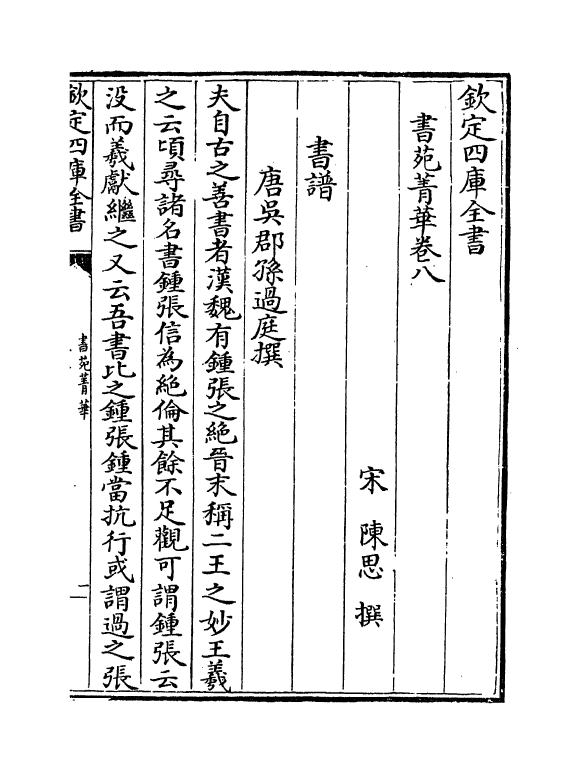 欽定四庫全書
書苑菁華卷八
宋 陳思 撰
書譜
唐吳郡孫過庭撰
夫自古之善書者漢魏有鍾張之絕晉末稱二王之妙王羲
之云頃尋諸名書鍾張信為絕倫其餘不足觀可謂鍾張云
没而羲獻繼之又云吾書比之鍾張鍾當抗行或謂過之張
欽定四庫全書
書苑菁華